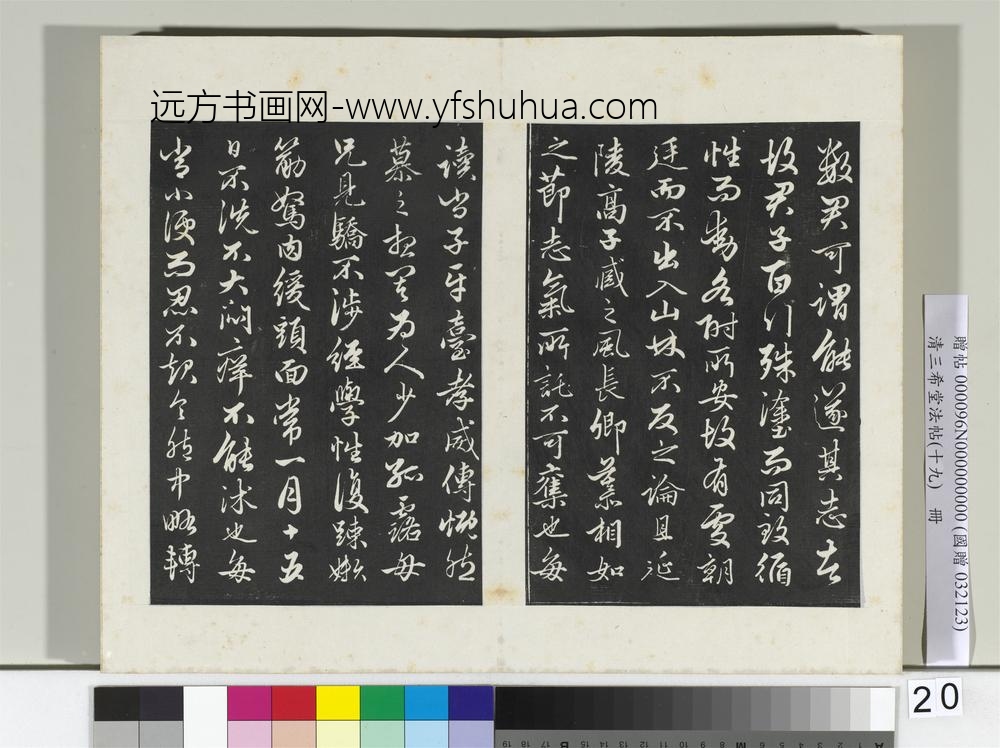 远方书画网-www.yfshuhua.com
數君可謂能遂其志者
故君子百行殊塗而同致循
性而動各附所安故有處朝
廷而不出入山林不反之論且延
陵高子臧之風長卿慕相如
之節志氣所託不可奪也每
讀尚子平臺孝威傳慨然
慕之想其為人少加孤露母
兄見驕不涉經學性復疎嬾
筋駑肉緩頭面常一月十五
日不洗不大悶痒不能沐也每
當小便而忍不起令胞中略轉
贈帖 000096N000000000 (國贈 032123)
清三希堂法帖(十九) 冊
20